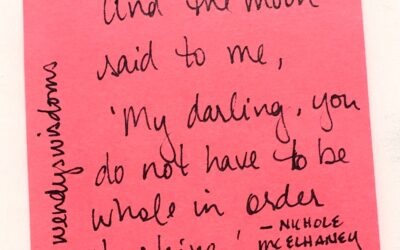 and the moon
said to me,
'My darling, you
do not have to be
whole in order
- NICHOLE
MCELHANEY
wendyswisdoms